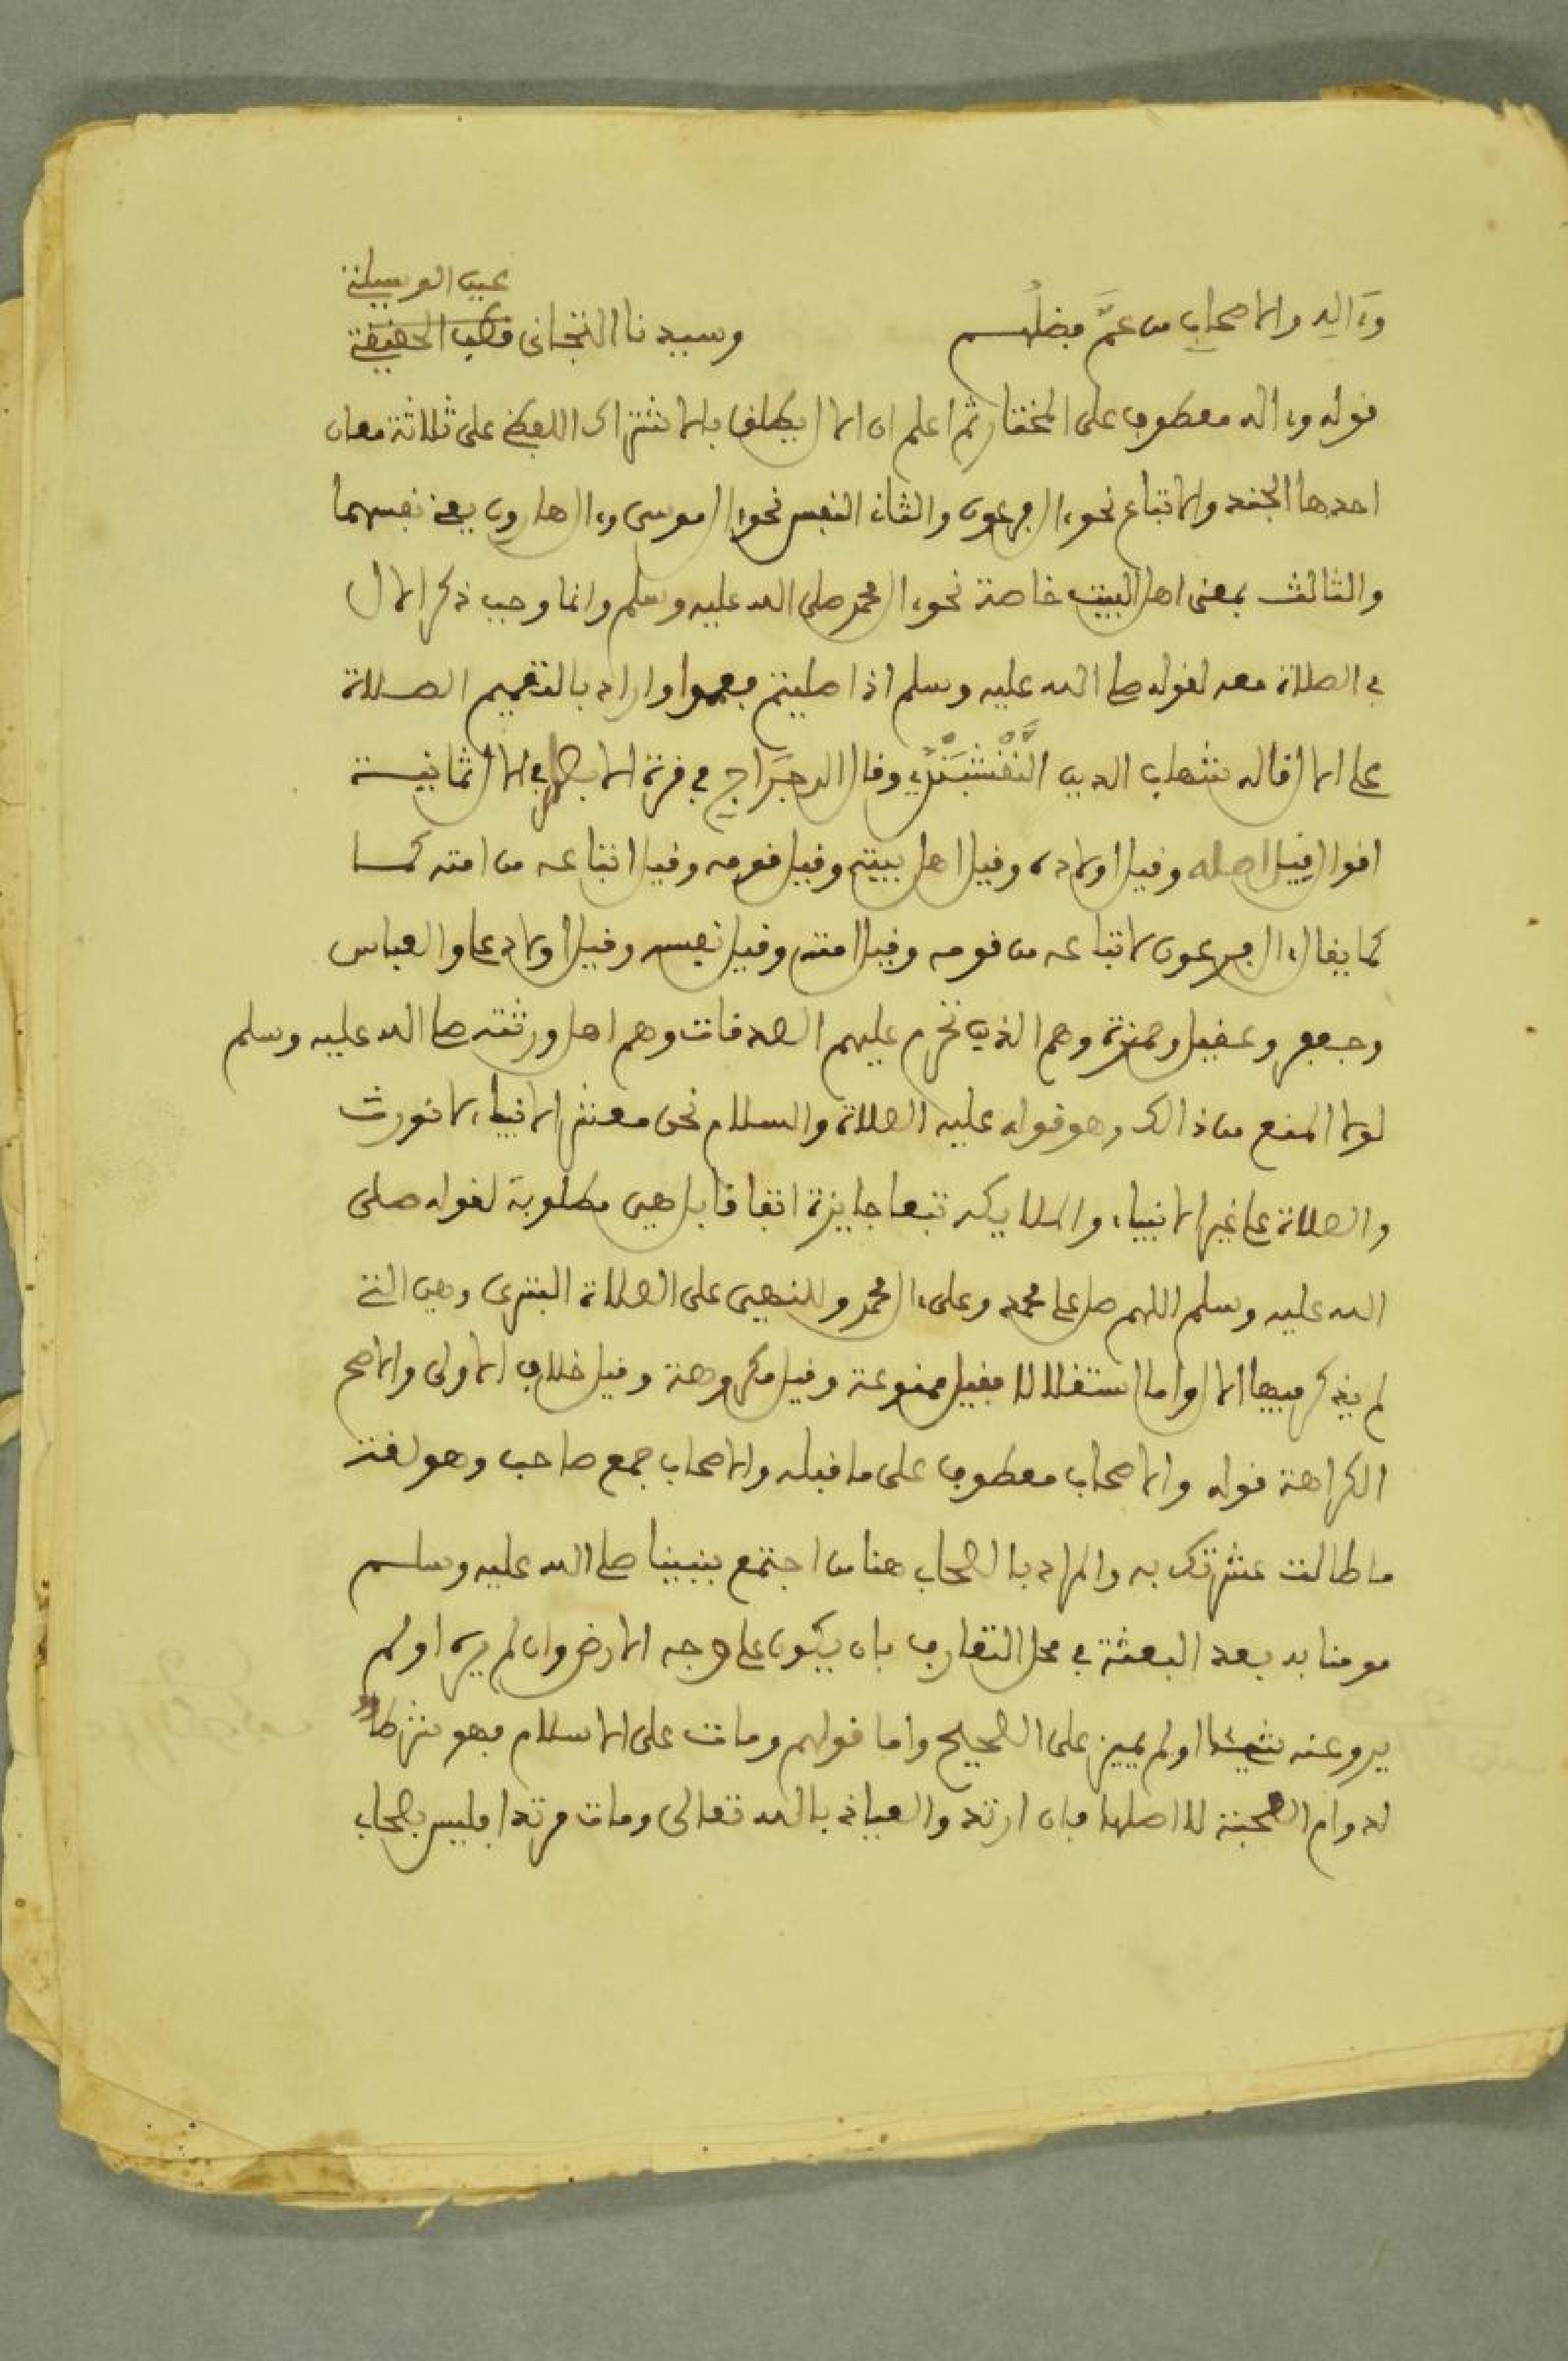 وءاله والاصحاب من عمَّ فضلُهم وسيدنا التجاني قطب الحقيقة
عين الوسيلة
قوله وءاله معطوف على المختار ثم اعلم ان الال يطلق بالاشتراك اللفظي على ثلاثة معان
احدها الجند والاتباع نحو ءال فرعون والثان النفس نحو ءال موسى وءال هارون يعني نفسهما
والثالث بمعنى اهل البيت خاصة نحو ءال محمد صلى الله عليه وسلم وانما وجب ذكر الال
في الصلاة معه لقوله صلى الله عليه وسلم اذا صليتم فعمموا واراد بالتعميم الصلاة
على الال قاله شهاب الدين وقال الدجراج في قرة الابصار في الال ثمانية
اقوال قيل اصله وقيل اولاده وقيل اهل بيته وقيل قومه وقيل اتباعه من امته كما
كما يقال ءال فرعون لاتباعه من قومه وقيل امته وقيل نفسه وقيل اولاد علي والعباس
وجعفر وعقيل وحمزة وهم الذين تحرم عليهم الصدقات وهم اهل ورثته صلى الله عليه وسلم
لولا المنع من ذالك وهو قوله عليه الصلاة والسلام نحن معشر الانبياء لا نورث
والصلاة على غير الانبياء والملايكة تبعا جايزة اتفاقا بل هي مطلوبة لقوله صلى
الله عليه وسلم اللهم صل على محمد وعلى ءال محمد وللنهي على الصلاة البترى وهي التي
لم يذكر فيها الال واما استقلالا فقيل ممنوعة وقيل مكروهة وقيل خلاف الاولى والاصح
الكراهة قوله والاصحاب معطوف على ما قبله والاصحاب جمع صاحب وهو لغة
ما طالت عشرتك به والمراد بالصحاب هنا من اجتمع بنبينا صلى الله عليه وسلم
مومنا به بعد البعثة في محل التعارف بان يكون على وجه الارض وان لم يره او لم
يرو عنه شيئا او لم يميز على الصحيح واما قولهم ومات على الاسلام فهو شرط
لدوام الصحبة لا اصلها فان ارتد والعياذ بالله تعالى ومات مرتدا فليس بصحاب